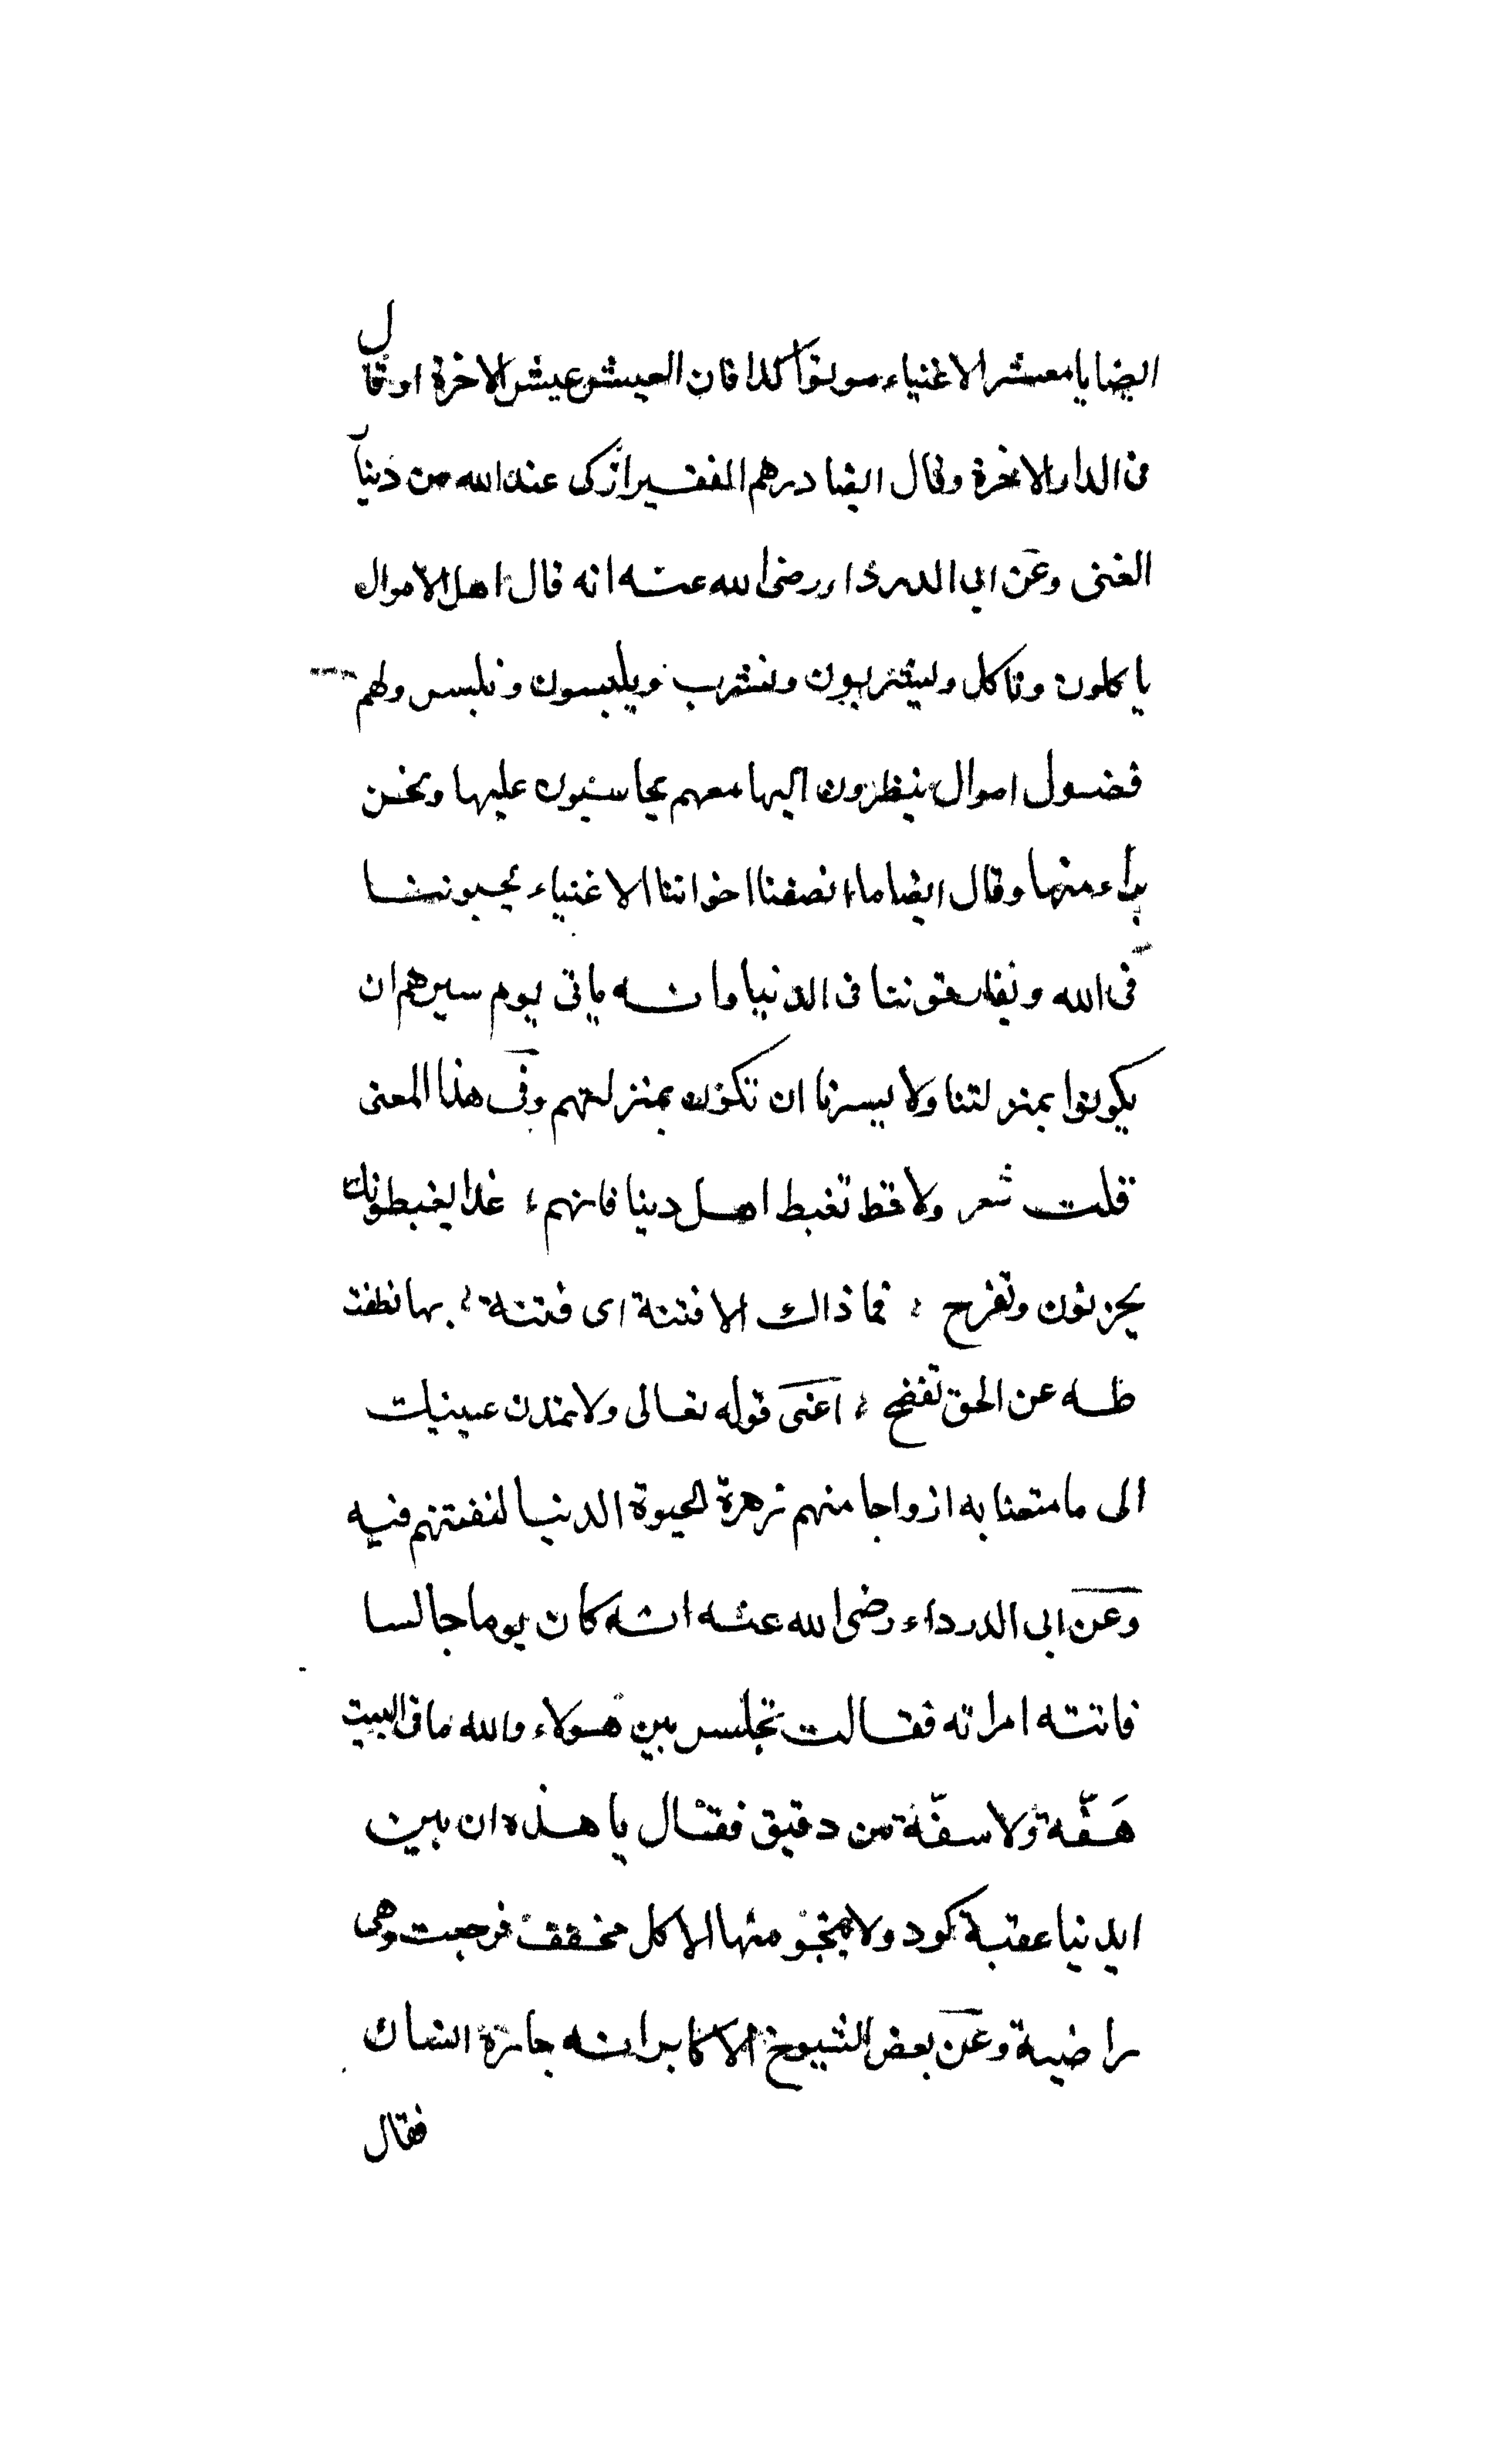 ايضا يا معشر الاغنياء موتوا كمدا فان العيش عيش الاخرة او قال
فى الدار الاخرة وقال ايضا درهم الفقير ازكى عند الله من دينار
الغنى وعن ابى الدرداء رضى الله عنه انه قال اهل الاموال
ياكلون وناكل ويشربون ونشرب ويلبسون ونلبس ولهم
فضول اموال ينظرون اليها معهم يحاسبون عليها ونحن
براء منها وقال ايضا ما انصفنا اخواننا الاغنياء يحبوننا
فى الله ويفارقوننا فى الدنيا وانه ياتى يوم سيرهم ان
يكونوا بمنزلتنا ولا يسرنا ان نكون بمنزلتهم وفى هذا المعنى
قلت شعر ولا قط تغبط اهل دنيا فانهم ، غدا يغبطونك
يحزنون وتفرح ، فما ذاك الا فتنة اى فتنة ، بها نطقت
طه عن الحق تفضح ، اعنى قوله تعالى ولا تمدن عينيك
الى ما متعنا به ازواجا منهم زهرة الحيوة الدنيا لنفتنهم فيه
وعن ابى الدرداء رضى الله عنه انه كان يوما جالسا
فاتته امراته فقالت تجلس بين هولاء والله ما فى البيت
هَفّة ولا سفّة من دقيق فقال يا هذه ان بين
ايدينا عقبة كود ولا ينجو منها الا كل مخفف فرجعت وهى
راضية وعن بعض الشيوخ الاكابر انه جاءه انسان
فقال